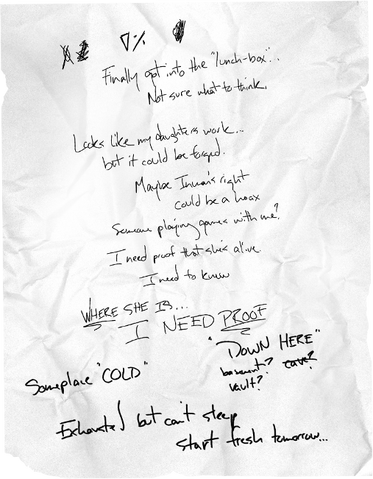 7%
Finally got into the "lunch-box"..
Not sure what to think.
Looks like my daughter's work...
but it could be forged.
Maybe Inman's right
could be a hoax
Someone playing games with me?
I need proof that she's alive
I need to know
WHERE SHE IS...
I NEED PROOF
"DOWN HERE"
basement? cave?
vault?
Someplace "COLD"
Exhausted but can't sleep
start fresh tomorrow...